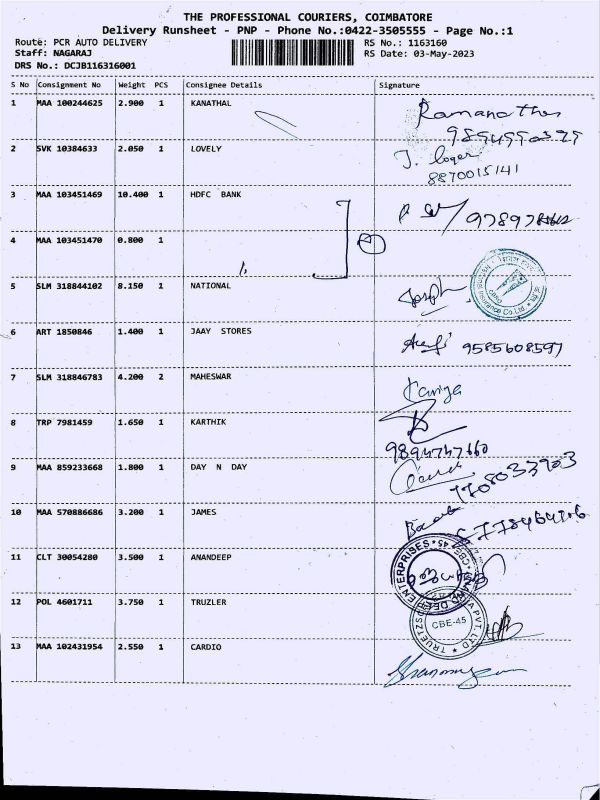 THE PROFESSIONAL COURIERS, COIMBATORE
Delivery Runsheet - PNP - Phone No.:0422-3505555 - Page No.:1
Route: PCR AUTO DELIVERY RS No.: 1163160
Staff: NAGARAJ RS Date: 03-May-2023
DRS No.: DCJB116316001
S No Consignment No Weight PCS Consignee Details Signature
1 MAA 100244625 2.900 1 KANATHAL Ramanathan
2 SVK 10384633 2.050 1 LOVELY
8870015141
3 MAA 103451469 10.400 1 HDFC BANK
4 MAA 103451470 0.800 1
5 SLM 318844102 8.150 1 NATIONAL Joseph
6 ART 1850846 1.400 1 JAAY STORES 9585608597
7 SLM 318846783 4.200 2 MAHESWAR
8 TRP 7981459 1.650 1 KARTHIK
9894747660
9 MAA 859233668 1.800 1 DAY N DAY 7708033903
10 MAA 570886686 3.200 1 JAMES
11 CLT 30054280 3.500 1 ANANDEEP
ENTERPRISES CBE-45
12 POL 4601711 3.750 1 TRUZLER
CBE-45
PVT. LTD
13 MAA 102431954 2.550 1 CARDIO